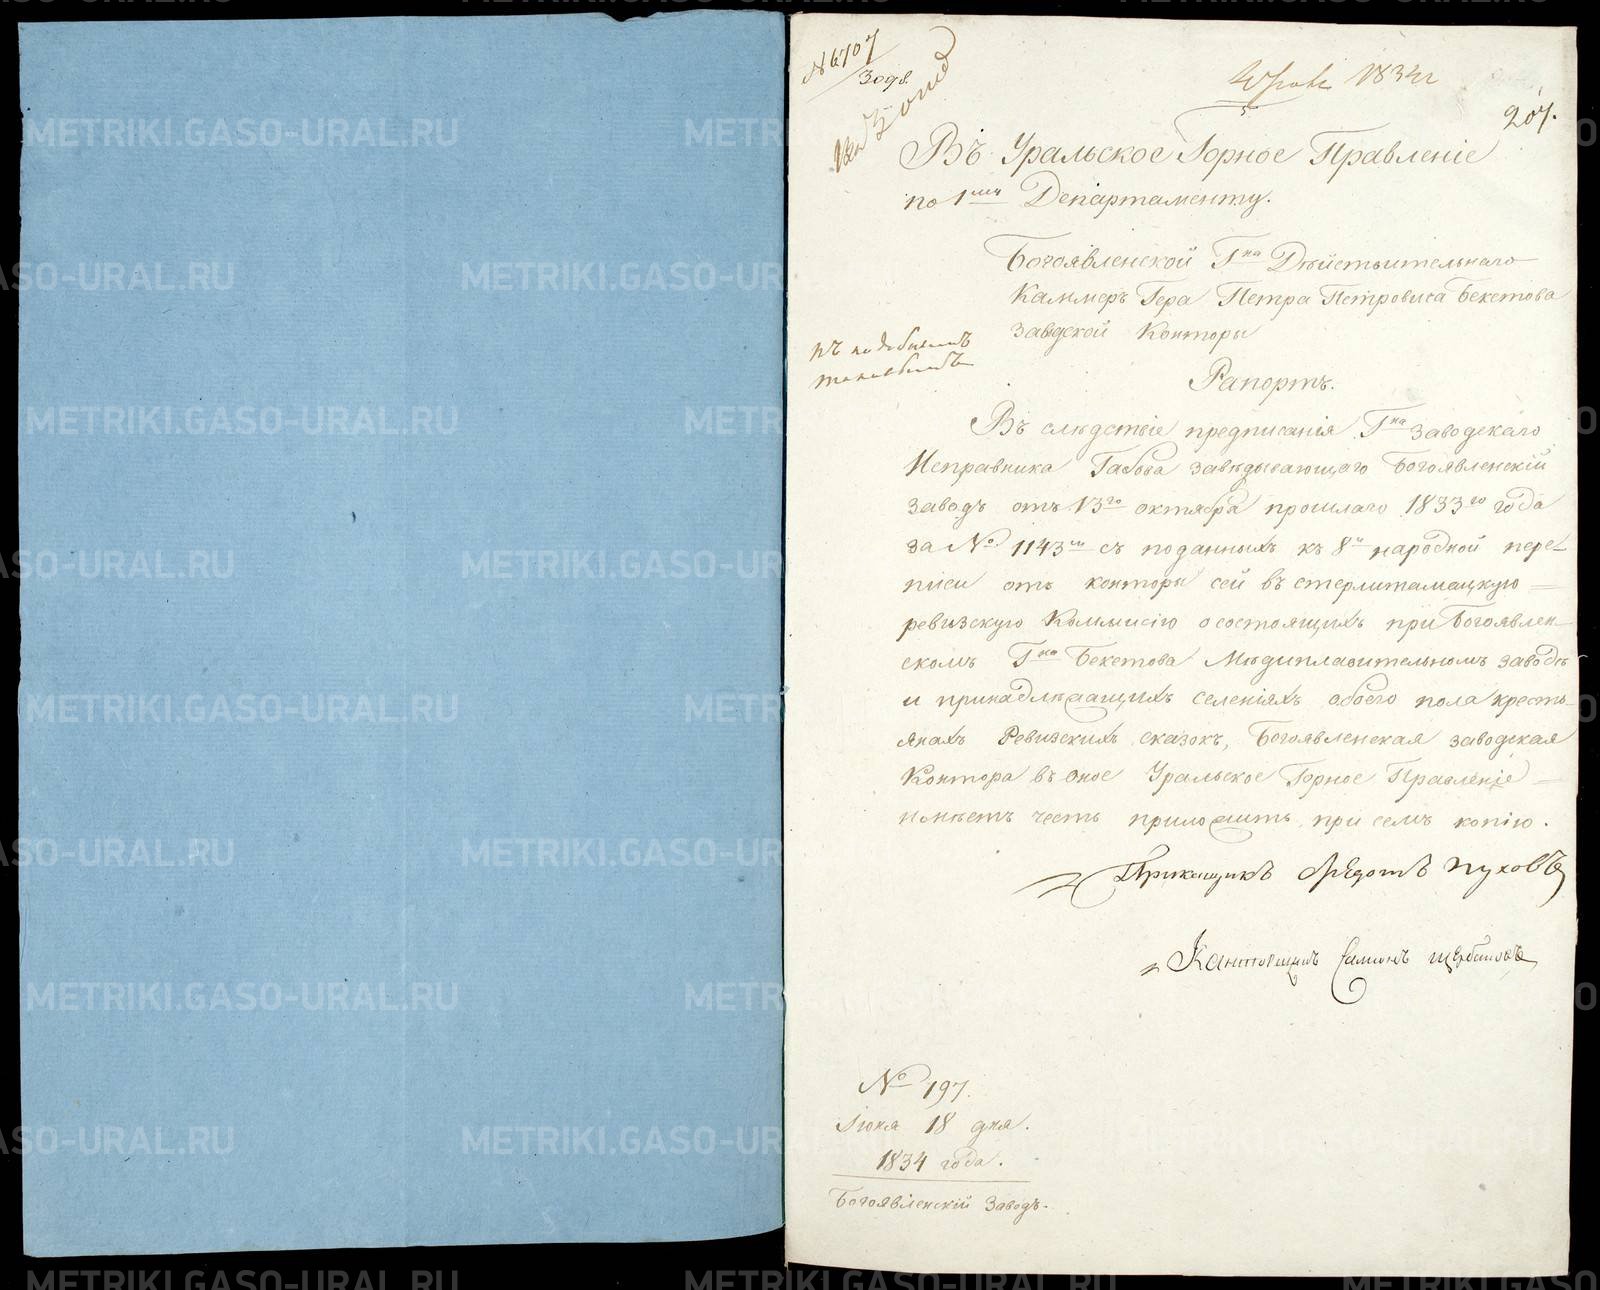 № 6707
30 дѣ.
1834
207.
Въ Уральское Горное Правленіе
по 1му Департаменту.
Богоявленской Гна Дѣйствительнаго
Каммеръ Гера Петра Петровича Бекетова
Заводской Конторы
къ подобнымъ
Рапортъ.
Въ слѣдствіе предписанія Гна Заводскаго
Исправника Габова завѣдывающаго Богоявленскій
заводъ отъ 13го октября прошлаго 1833го года
за № 1143м съ поданныхъ къ 8й народной пере-
писи отъ конторы сей въ стерлитамацкую
ревизскую Коммисію о состоящихъ при Богоявлен-
скомъ Гна Бекетова Мѣдиплавительномъ заводѣ
и принадлѣжащихъ селеніяхъ обоего пола кресть-
янахъ Ревизскихъ сказокъ, Богоявленская заводская
Контора въ оное Уральское Горное Правленіе
имѣетъ честь приложить при семъ копію.
Прикащикъ Ѳедотъ Пуховъ
Канторщикъ Самсонъ Щербаковъ
№ 197.
Іюня 18 дня.
1834 года.
Богоявленскій Заводъ.
METRIKI.GASO-URAL.RU